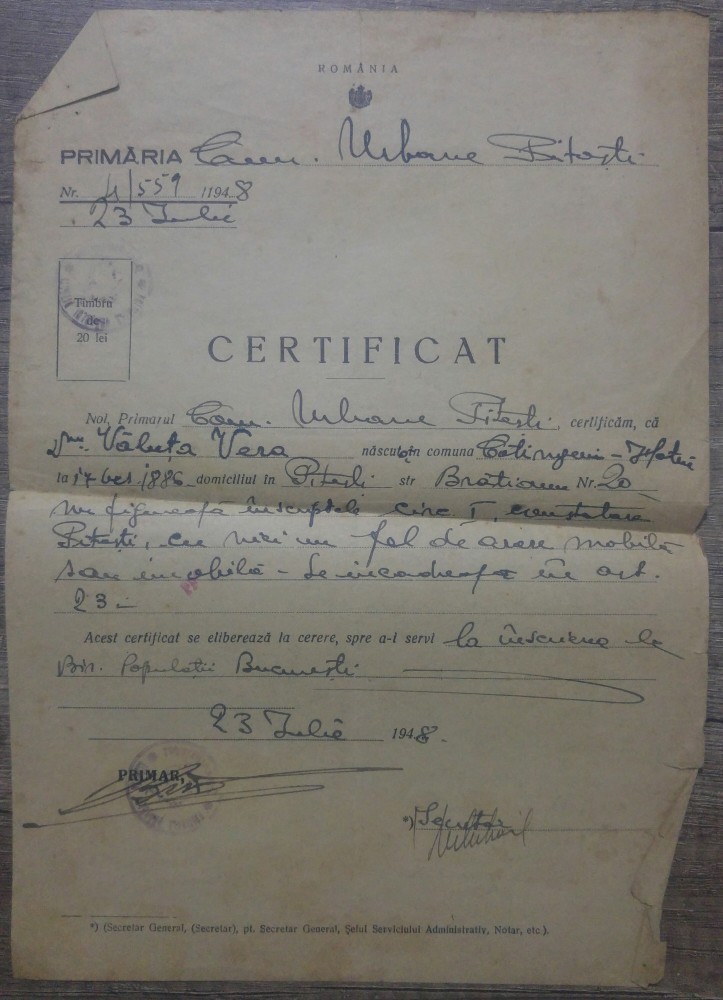 ROMÂNIA
PRIMĂRIA Com. Urbane Pitești
Nr. 4/559 /1948
23 Iulie
Timbru
de
20 lei
CERTIFICAT
Noi, Primarul Com. Urbane Pitești, certificăm, că
Văluța Vera născut în comuna
la 17 1886 domiciliul în Pitești str Brătianu Nr. 20
nu figurează circ. I,
Pitești, cu nici un fel de avere mobilă
sau imobilă - Se încadrează în art.
23 -
Acest certificat se eliberează la cerere, spre a-i servi la înscrierea la
Bir. Populații București
23 Iulie 1948.
PRIMAR,
*) Secretar
*) (Secretar General, (Secretar), pt. Secretar General, Șeful Serviciului Administrativ, Notar, etc.).